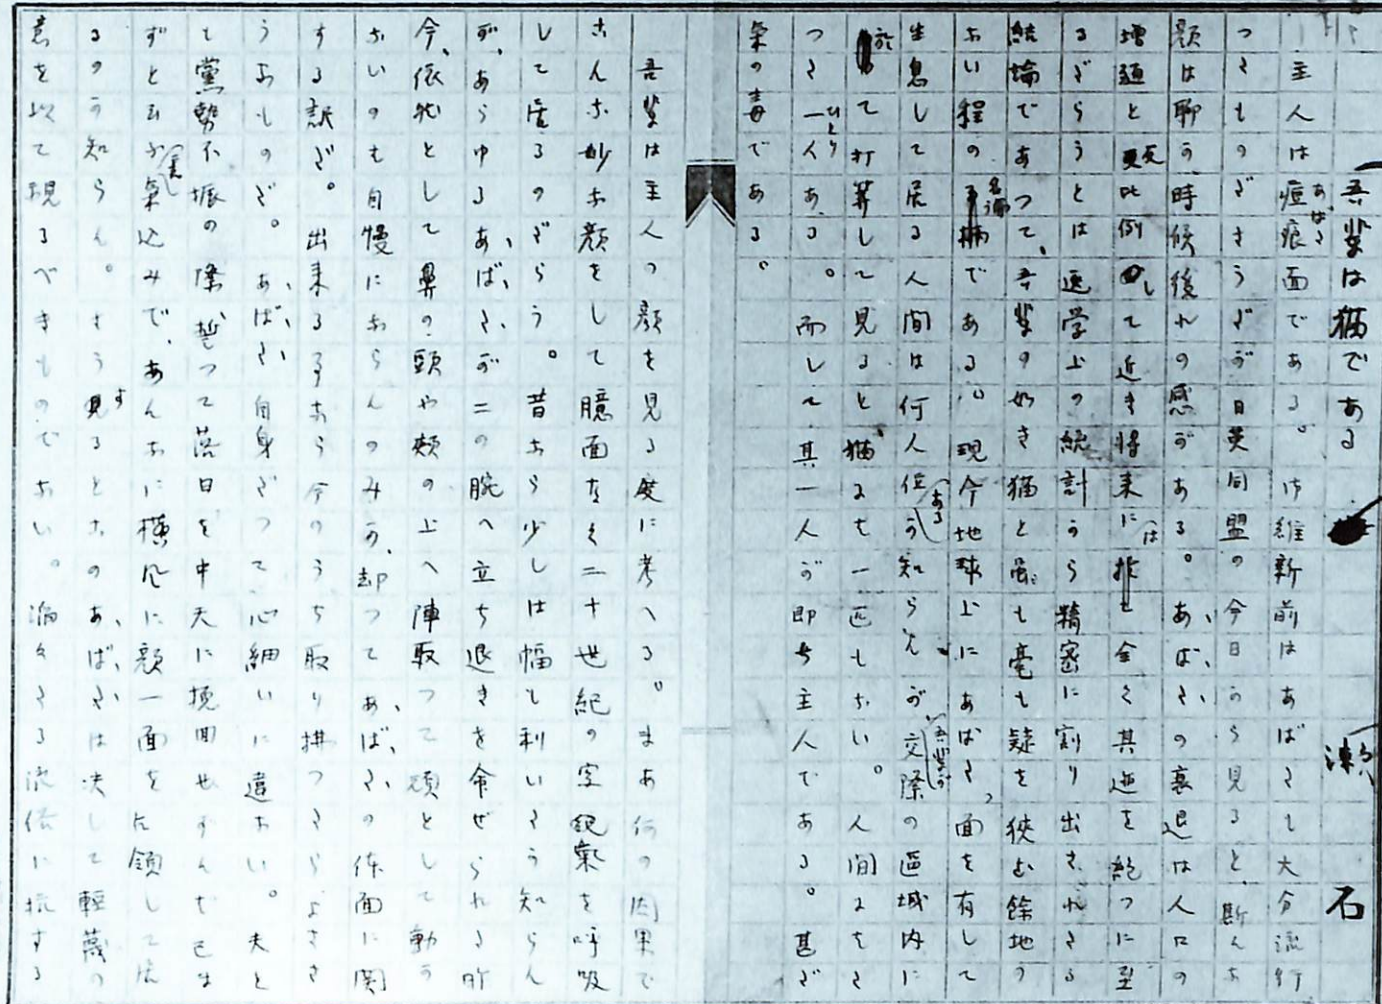 吾輩は猫である 漱石
主人は痘痕面である。御維新前はあばたも大分流行
つたものださうだが日英同盟の今日から見ると、斯んな
顔は聊か時候後れの感がある。あばたの衰退は人口の
増殖と反比例して近き将来には全く其迹を絶つに至
るだらうとは医学上の統計から精密に割り出されたる
結論であつて、吾輩の如き猫と雖も毫も疑を挟む餘地の
ない程の名論である。現今地球上にあばたつ面を有して
生息して居る人間は何人位あるか知らんが吾輩が交際の区域内に
於て打算して見ると猫には一匹もない。人間にはた
つた一人ある。而して其一人が即ち主人である。甚だ
気の毒である。
吾輩は主人の顔を見る度に考へる。まあ何の因果で
こんな妙な顔をして臆面なく二十世紀の空気を呼吸
して居るのだらう。昔なら少しは幅も利いたか知らん
が、あらゆるあばたが二の腕へ立ち退きを命ぜられた昨
今、依然として鼻の頭や頬の上へ陣取つて頑として動か
ないのは自慢にならんのみか、却つてあばたの体面に関
する訳だ。出来る事なら今のうち取り払つたらよささ
うなものだ。あばた自身だつて心細いに違ない。夫と
も党勢不振の際、誓つて落日を中天に挽回せずんば已ま
ずと云ふ意気込みで、あんなに横風に顔一面を占領して居
るのか知らん。さうすると此のあばたは決して軽蔑の
意を以て視るべきものでない。滔々たる流俗に抗する